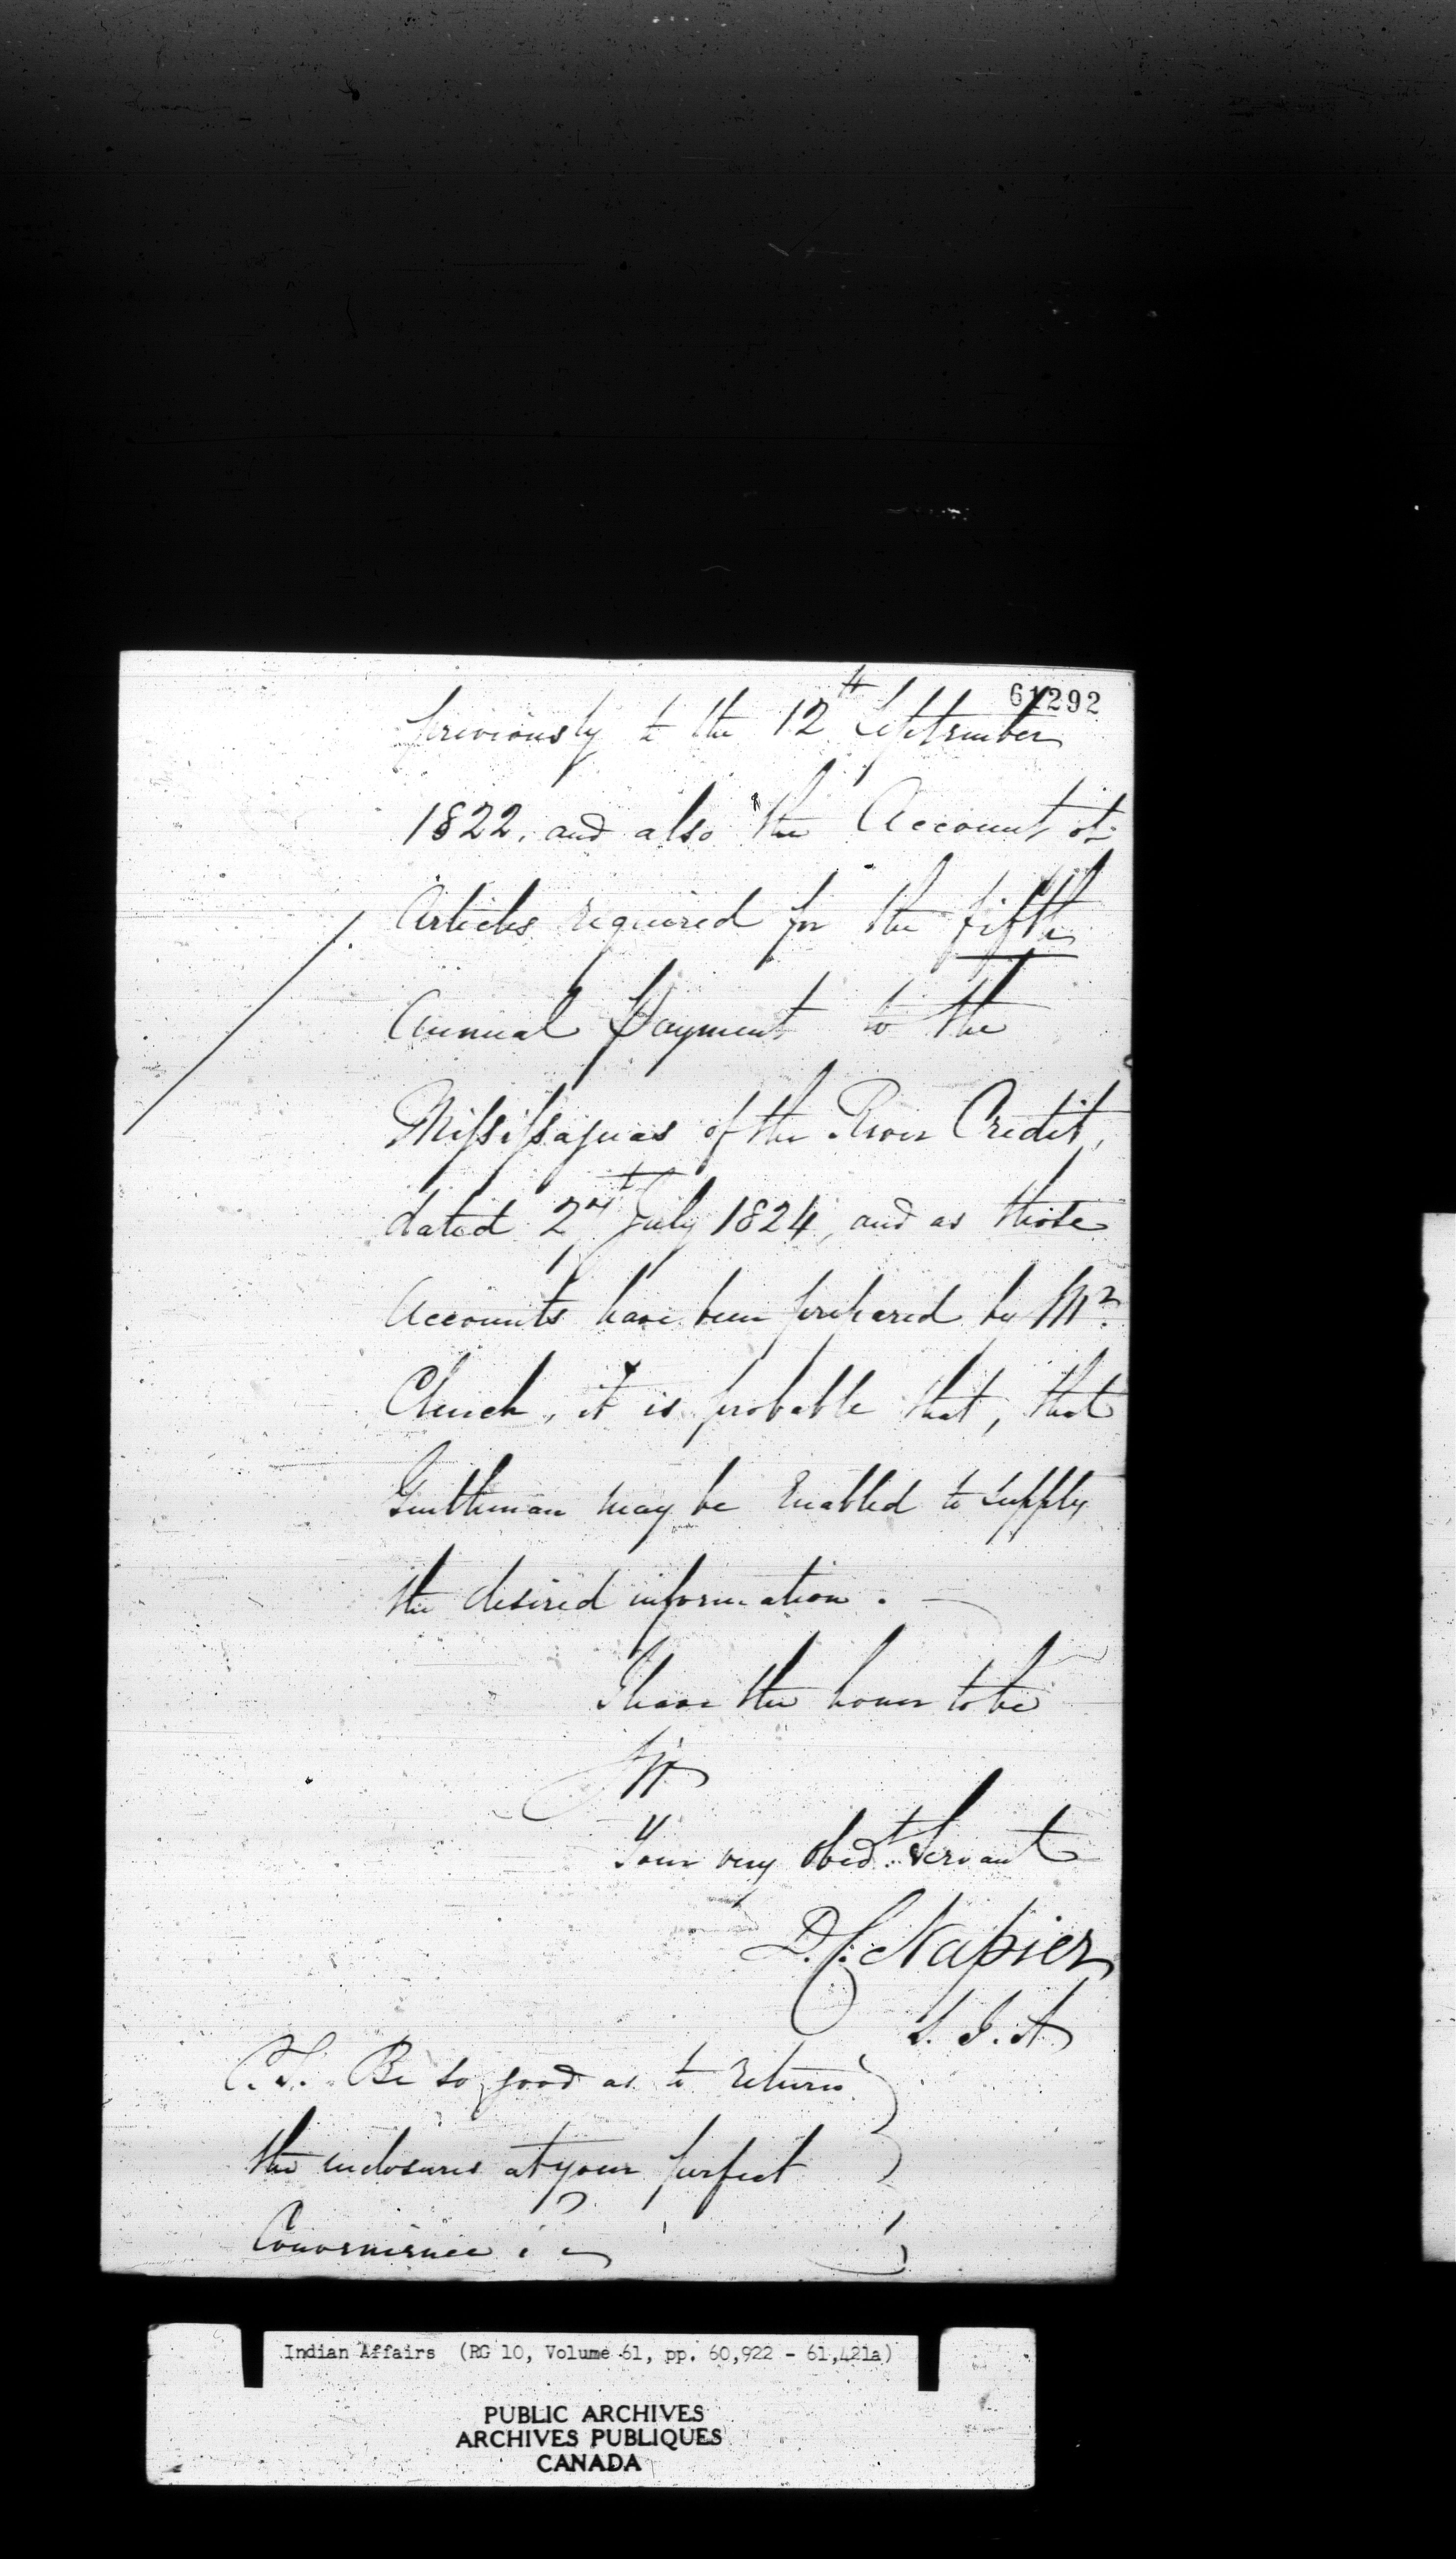 61292
previously to the 12th September
1822, and also the Account of
Articles required for the fifth
Annual Payment to the
Missisaguas of the River Credit,
dated 2nd July 1824, and as those
Accounts have been prepared by Mr.
Clench, it is probable that, that
Gentleman may be Enabled to supply
the desired information. —
I have the honor to be
Sir
Your very Obedt. Servant
D. C. Napier
S. I. A
P.S. Be so good as to return
the enclosures at your perfect
Convenience.
Indian Affairs (RG 10, Volume 61, pp. 60,922 - 61,421a)
PUBLIC ARCHIVES
ARCHIVES PUBLIQUES
CANADA